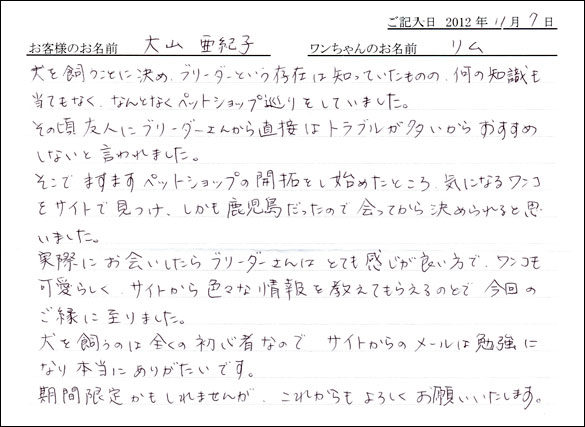 ご記入日 2012 年 11 月 7 日
お客様のお名前 大山 亜紀子 ワンちゃんのお名前 リム
犬を飼うことに決め、ブリーダーという存在は知っていたものの、何の知識も
当てもなく、なんとなくペットショップ巡りをしていました。
その頃友人にブリーダーさんから直接はトラブルが多いからおすすめ
しないと言われました。
そこでますますペットショップの開拓をし始めたところ、気になるワンコ
をサイトで見つけ、しかも鹿児島だったので会ってから決められると思
いました。
実際にお会いしたらブリーダーさんはとても感じが良い方で、ワンコも
可愛らしく、サイトから色々な情報を教えてもらえるのとで今回の
ご縁に至りました。
犬を飼うのは全くの初心者なので サイトからのメールは勉強に
なり本当にありがたいです。
期間限定かもしれませんが、これからもよろしくお願いいたします。